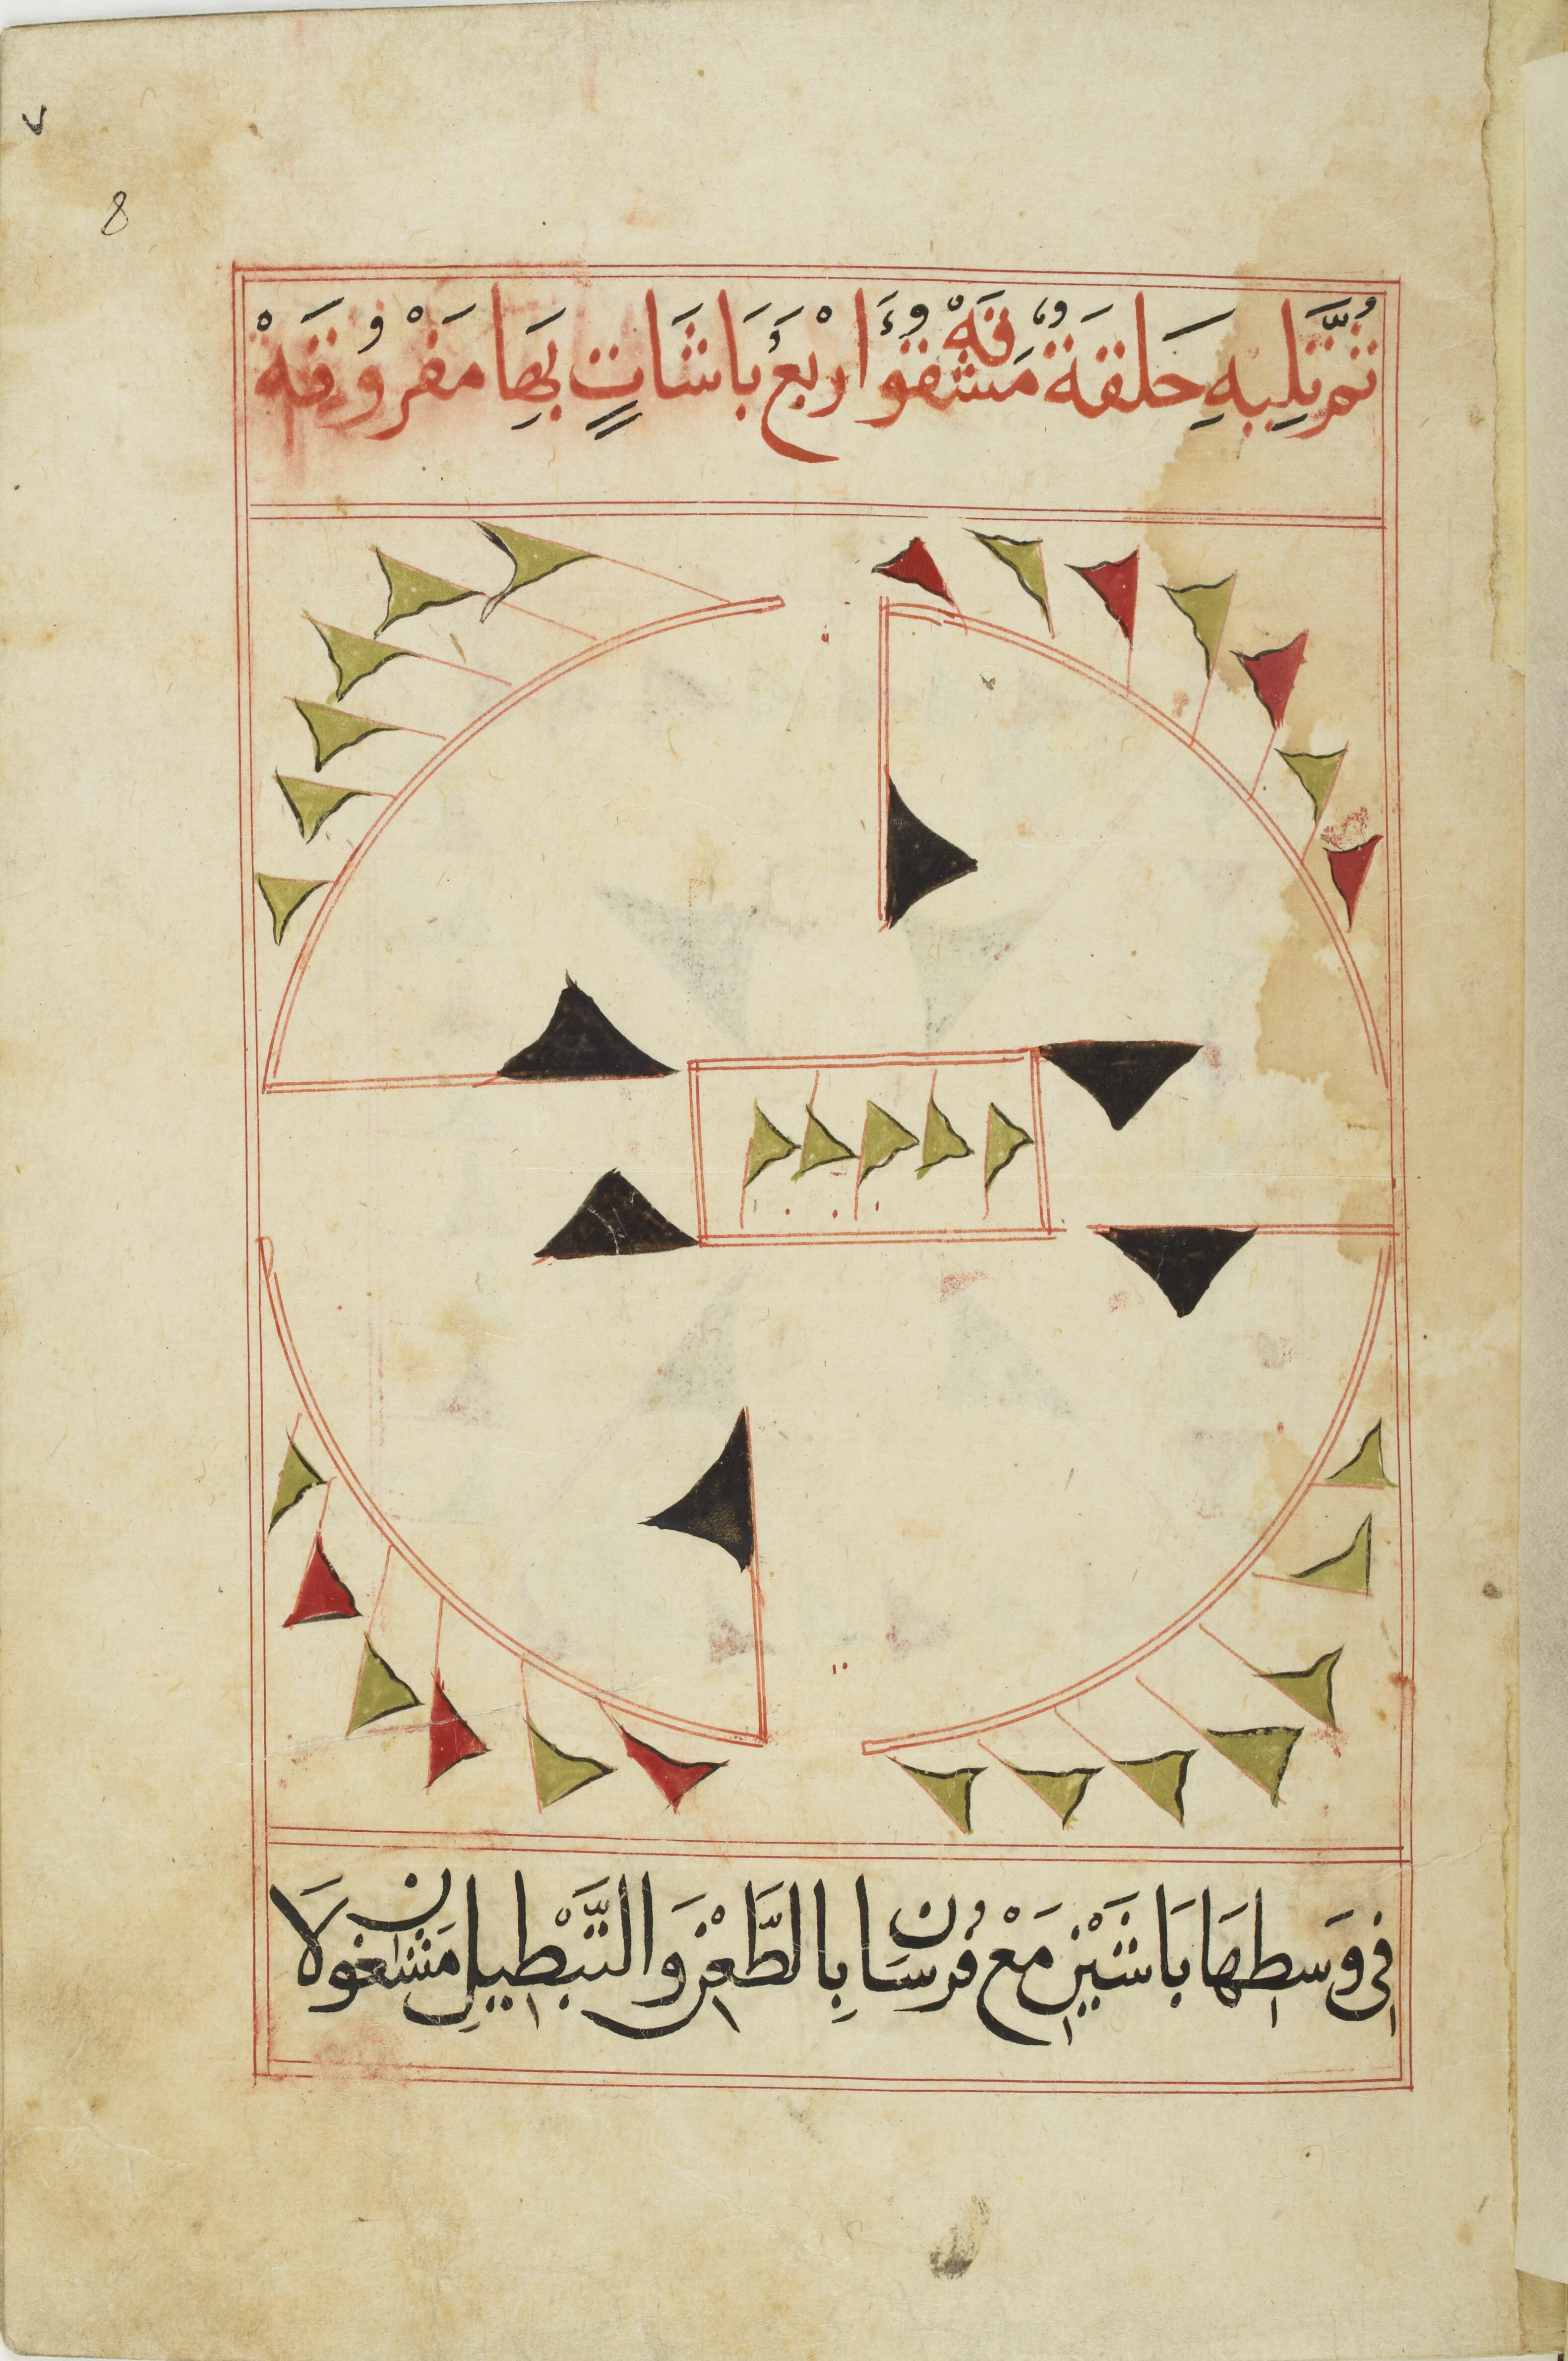 ٧
8
ثُمَّ تَلِيهِ حَلَقَةٌ مَشْقُوقَهْ وَأَرْبَعُ بَاشَاتٍ بِهَا مَفْرُوقَهْ
فِي وَسطِهَا بَاشَيْنِ مَعْ فُرْسَانِ بِالطَّعْنِ وَالتَّبْطِيلِ مَشْغُولَانِ